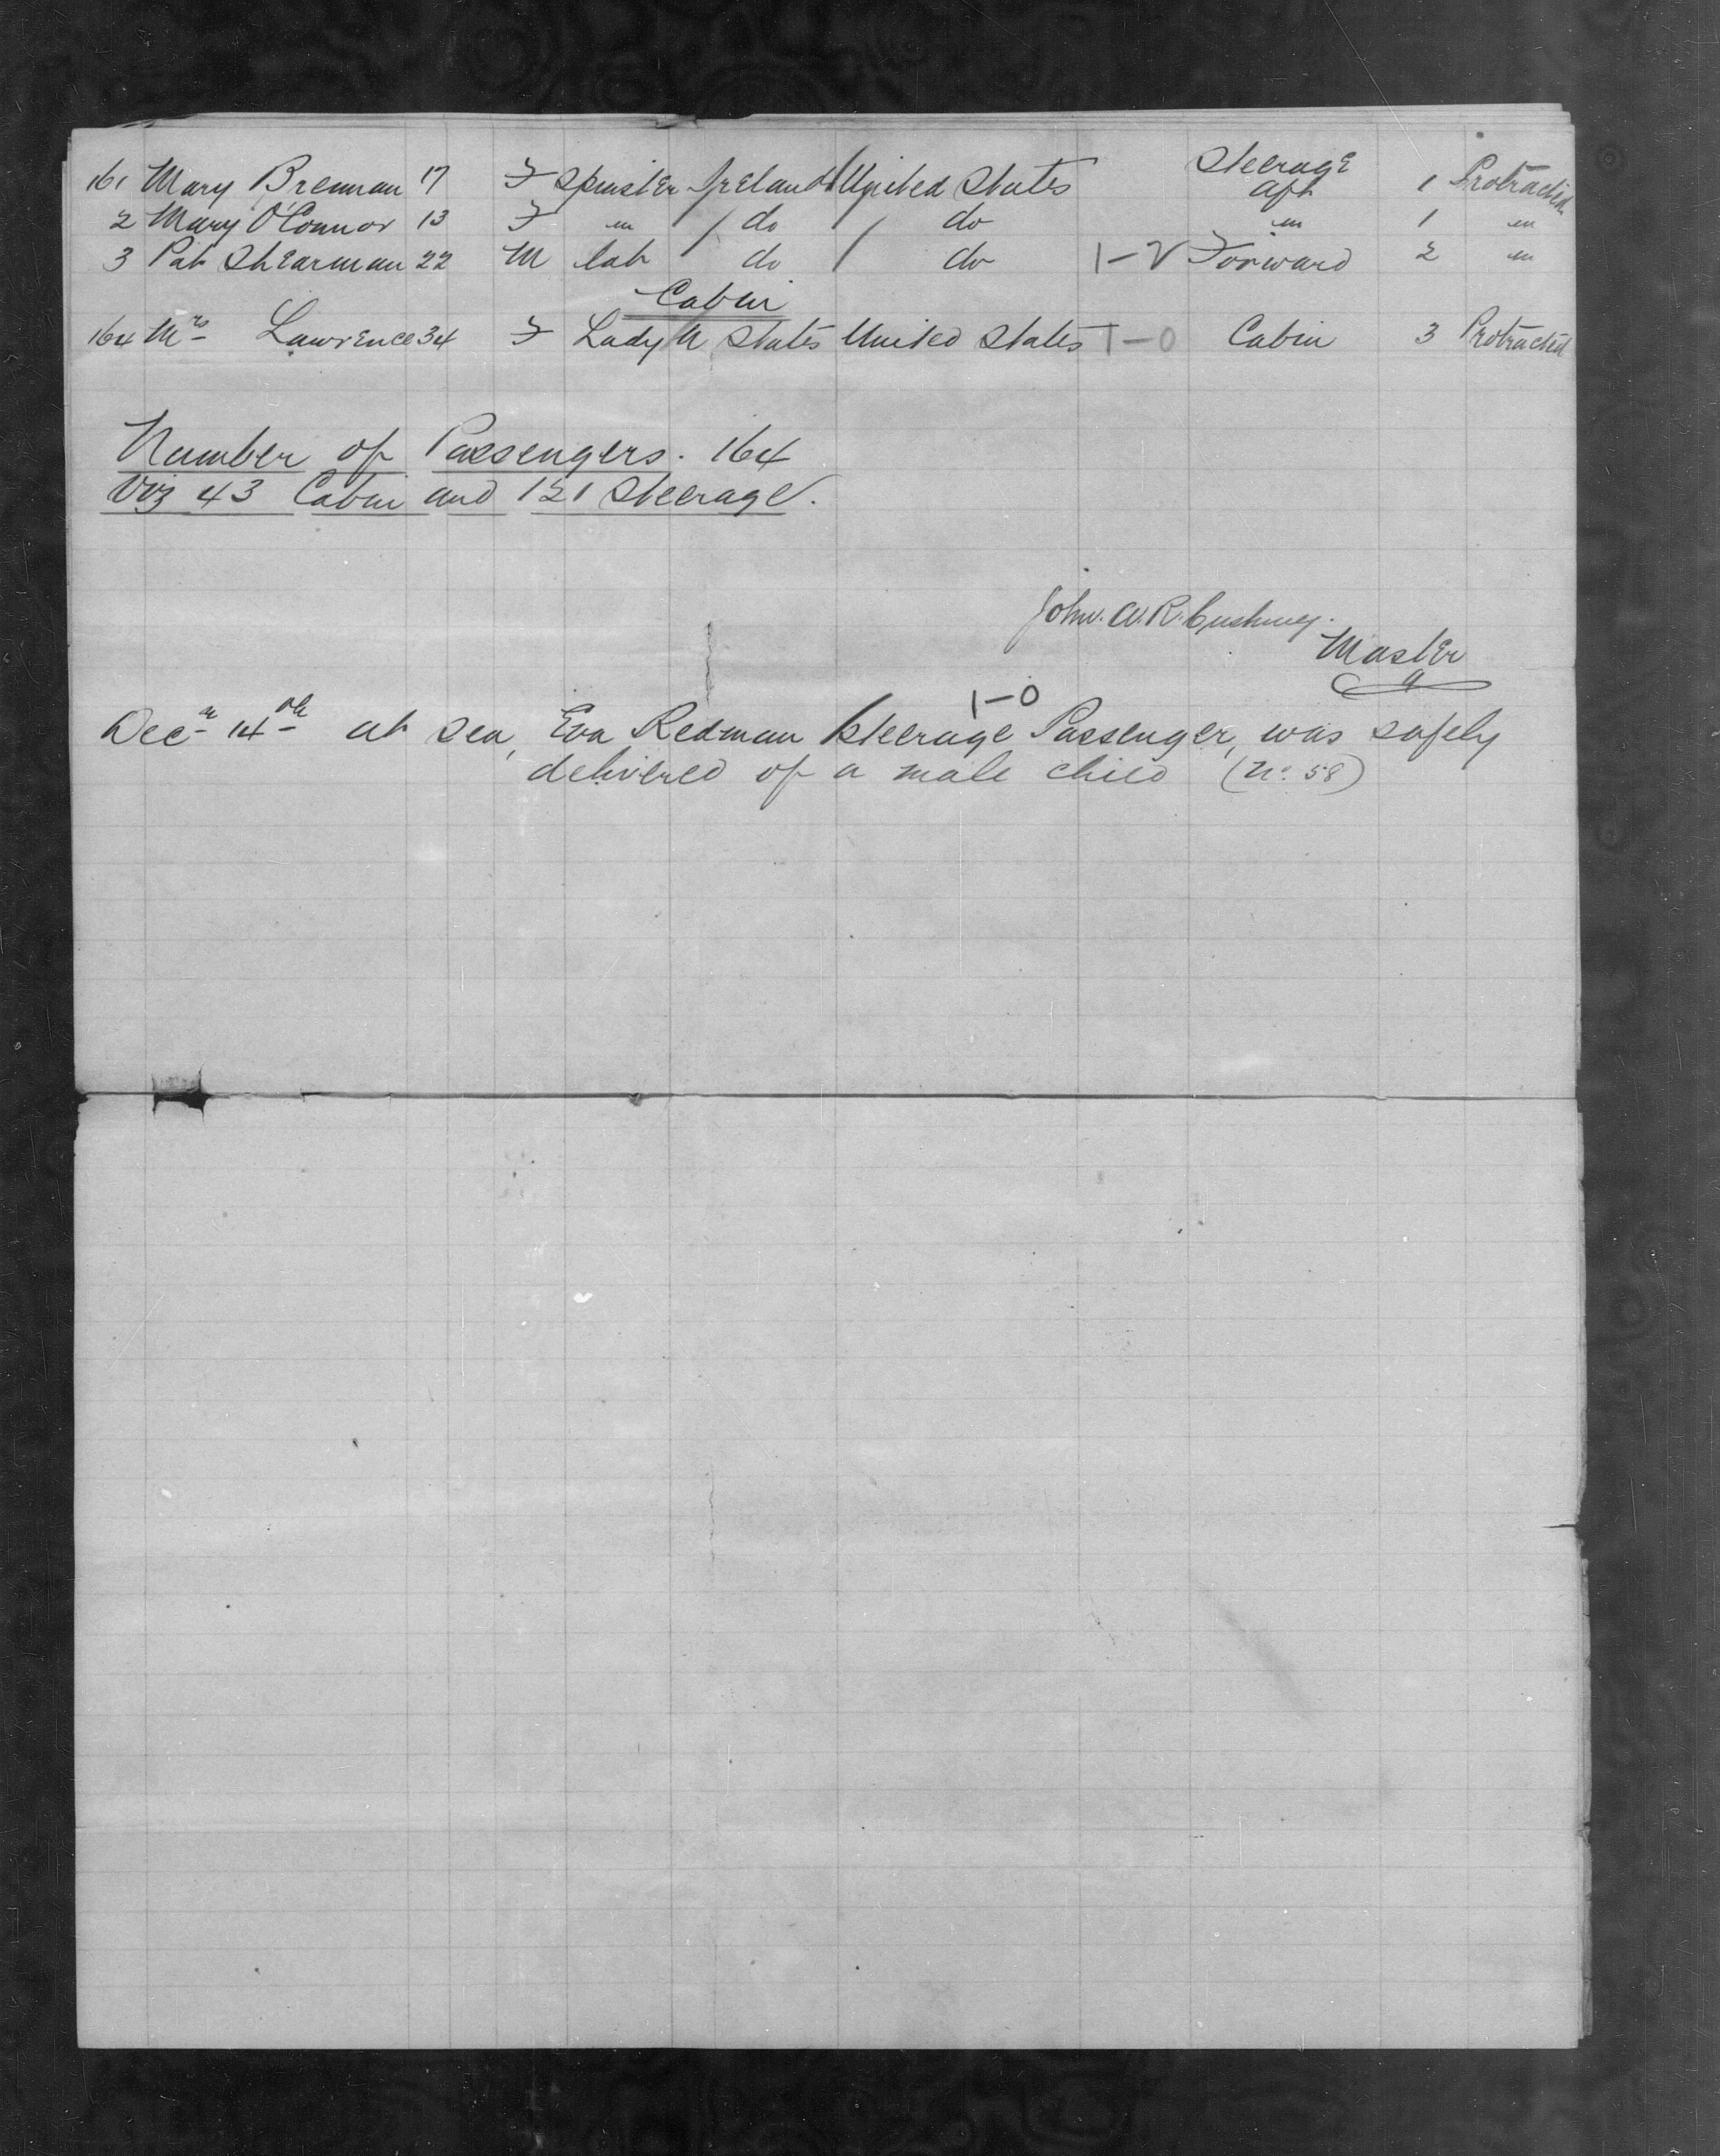 Steerage
161 Mary Brennan 17 F Spinster Ireland United States aft 1 Protracted
2 Mary O'Connor 13 F " / do / do " 1 "
3 Pat Shearman 22 M lab do / do 1-2 Forward 2 "
Cabin
164 Mrs Lawrence 34 F Lady U States United States 1-0 Cabin 3 Protracted
Number of Passengers. 164
Viz 43 Cabin and 121 Steerage.
John. W. R. Cushing.
Master
1-0
Decr 14th at sea, Eva Redman Steerage Passenger, was safely
delivered of a male child (No. 58)